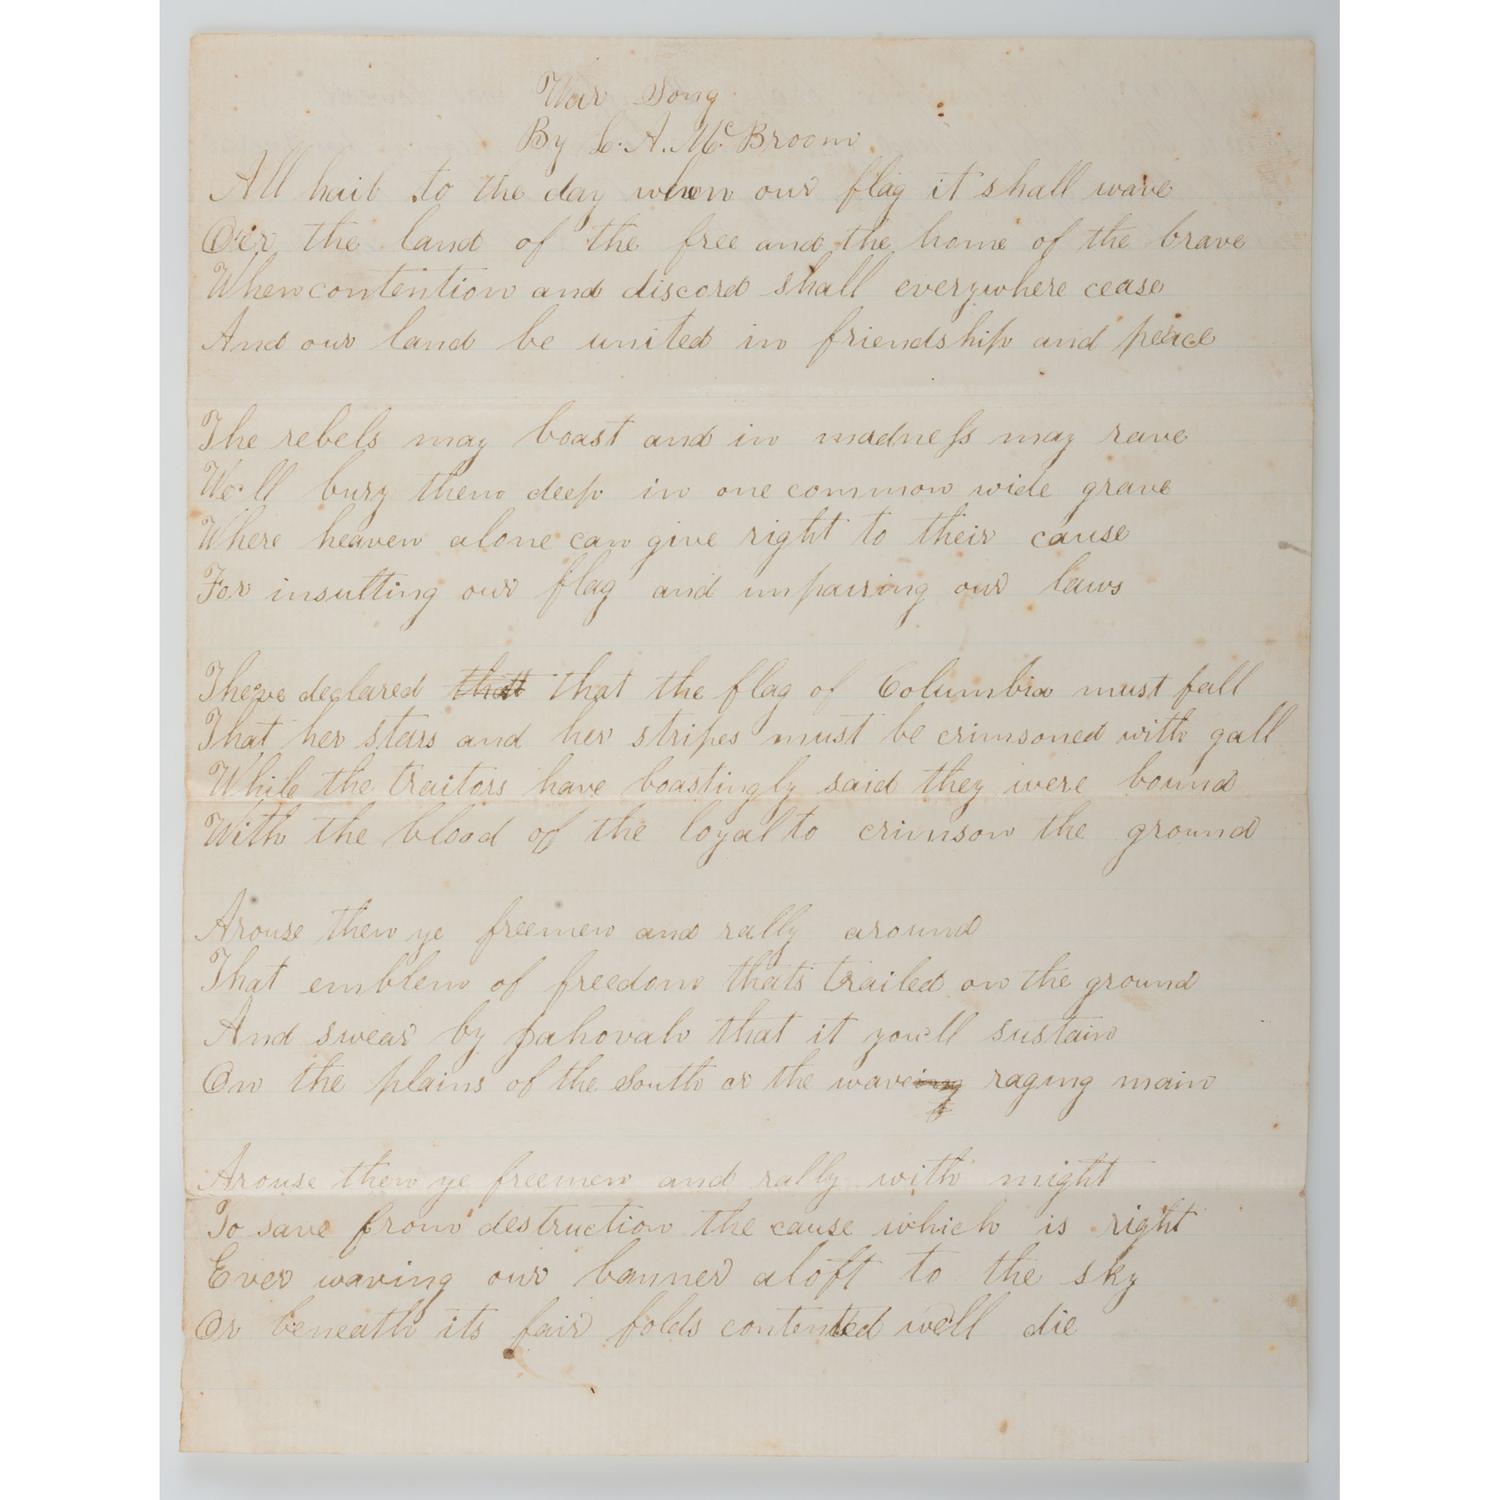 War Song
By L. A. McBroom
All hail to the day when our flag it shall wave
O'er the land of the free and the home of the brave
When contention and discord shall everywhere cease
And our land be united in friendship and peace
The rebels may boast and in madness may rave
We'll bury them deep in one common wide grave
Where heaven alone can give right to their cause
For insulting our flag and impairing our laws
They've declared that that the flag of Columbia must fall
That her stars and her stripes must be crimsoned with gall
While the traitors have boastingly said they were bound
With the blood of the loyal to crimson the ground
Arouse then ye freemen and rally around
That emblem of freedom that's trailed on the ground
And swear by jahovah that it you'll sustain
On the plains of the South or the waveing raging main
Arouse then ye freemen and rally with might
To save from destruction the cause which is right
Ever waving our banner aloft to the sky
Or beneath its fair folds contented we'll die